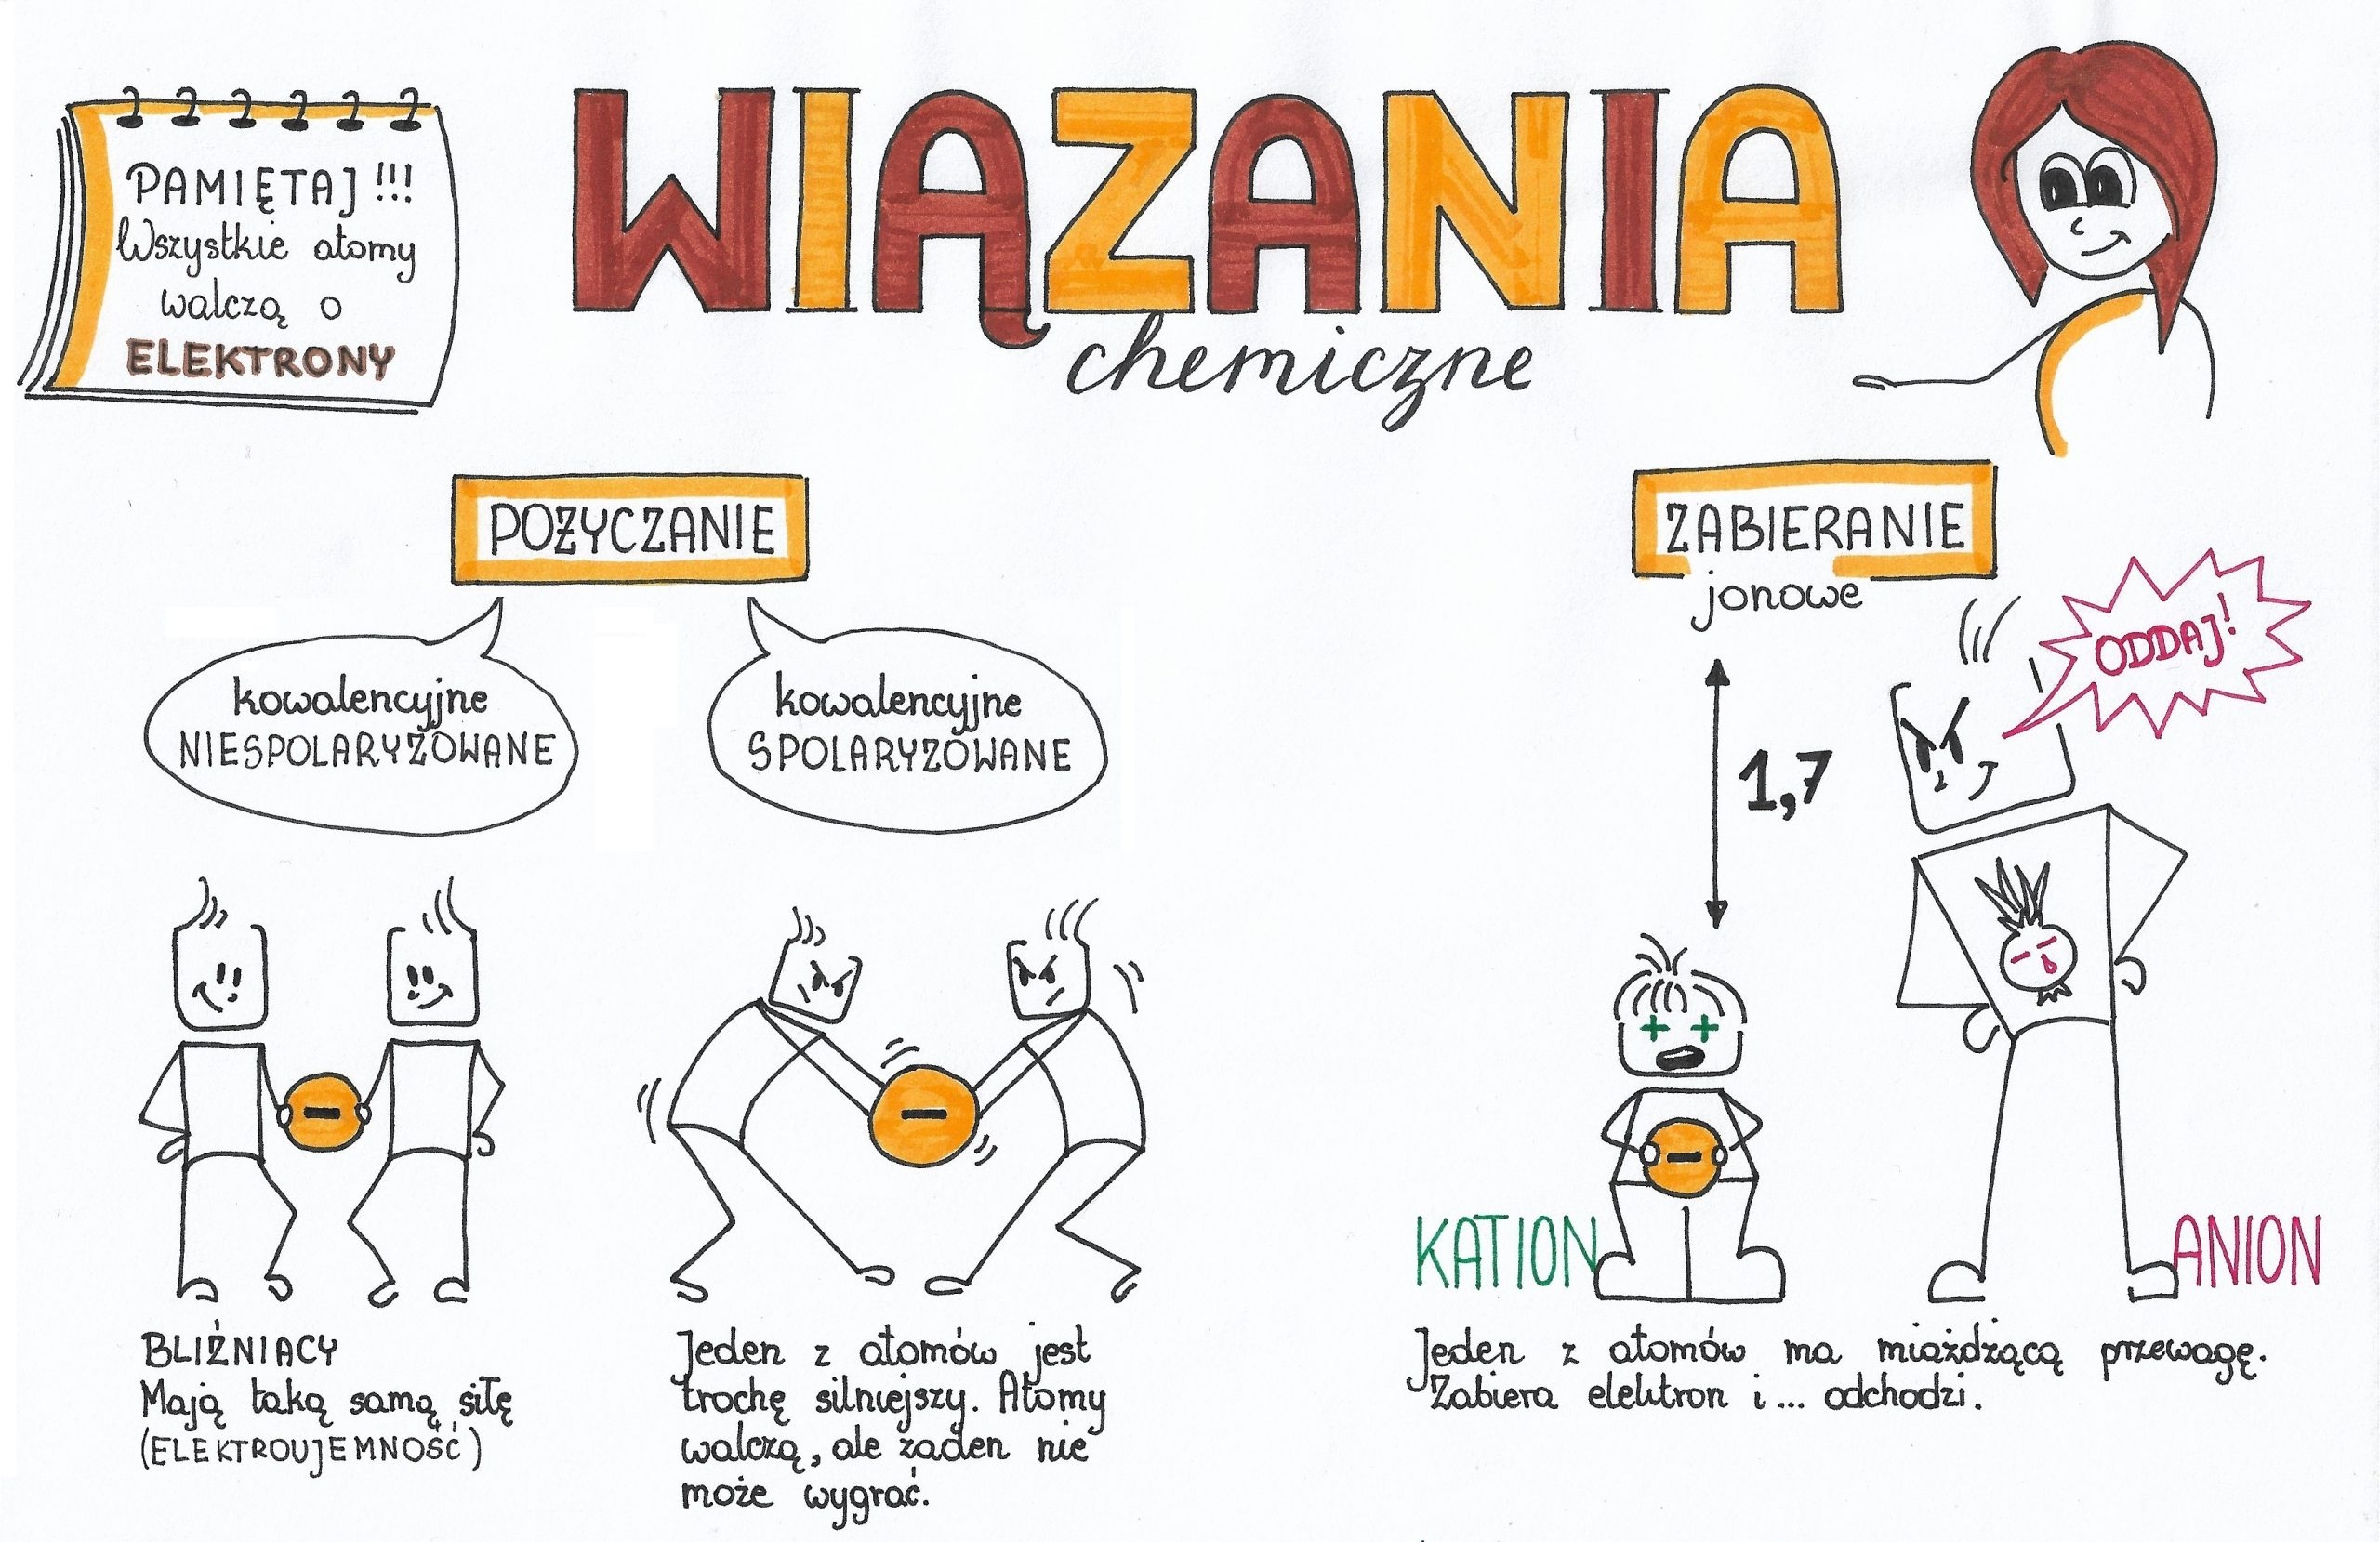 PAMIĘTAJ!!!
Wszystkie atomy
walczą o
ELEKTRONY
WIĄZANIA
chemiczne
POŻYCZANIE
kowalencyjne
NIESPOLARYZOWANE
kowalencyjne
SPOLARYZOWANE
BLIŹNIACY
Mają taką samą siłę
(ELEKTROUJEMNOŚĆ)
Jeden z atomów jest
trochę silniejszy. Atomy
walczą, ale żaden nie
może wygrać.
ZABIERANIE
jonowe
ODDAJ!
1,7
KATION
ANION
Jeden z atomów ma miażdżącą przewagę.
Zabiera elektron i... odchodzi.